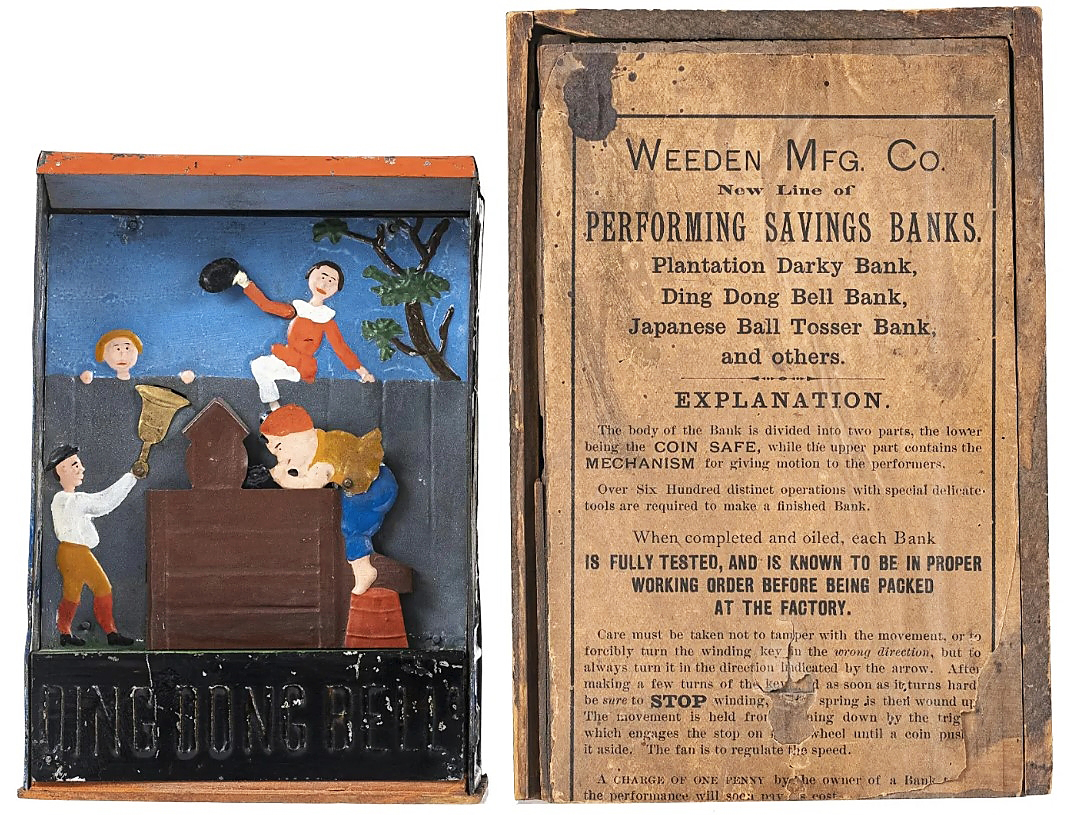 DING DONG BELL
WEEDEN MFG. CO.
New Line of
PERFORMING SAVINGS BANKS.
Plantation Darky Bank,
Ding Dong Bell Bank,
Japanese Ball Tosser Bank,
and others.
EXPLANATION.
The body of the Bank is divided into two parts, the lower
being the COIN SAFE, while the upper part contains the
MECHANISM for giving motion to the performers.
Over Six Hundred distinct operations with special delicate
tools are required to make a finished Bank.
When completed and oiled, each Bank
IS FULLY TESTED, AND IS KNOWN TO BE IN PROPER
WORKING ORDER BEFORE BEING PACKED
AT THE FACTORY.
Care must be taken not to tamper with the movement, or to
forcibly turn the winding key in the wrong direction, but to
always turn it in the direction indicated by the arrow. After
making a few turns of the key and as soon as it turns hard
be sure to STOP winding, spring is then wound up
The movement is held from down by the
which engages the stop on wheel until a coin
it aside. The fan is to regulate the speed.
A CHARGE OF ONE PENNY by the owner of a Bank
the performance will soon pay cost